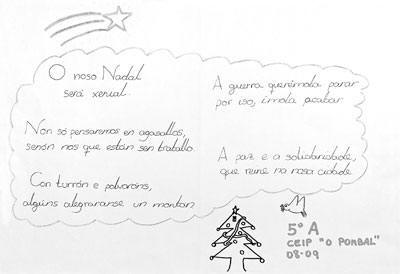 O noso Nadal
será xenial.
Non só pensaremos en agasallos,
senón nos que están sen traballo.
Con turrón e polvoróns,
algúns alegraranse un montón
A guerra querémola parar
por iso, ímola acabar
A paz e a solidariedade,
que reine na nosa cidade
5º A
CEIP "O POMBAL"
08-09